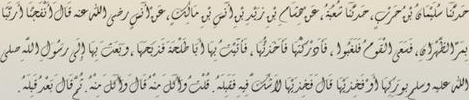 حدثنا سليمان بن حرب، حدثنا شعبة، عن هشام بن زيد بن أنس بن مالك، عن أنس رضى الله عنه قال أنفجنا أرنبا
بمر الظهران، فسعى القوم فلغبوا، فأدركتها فأخذتها، فأتيت بها أبا طلحة فذبحها، وبعث بها إلى رسول الله صلى
الله عليه وسلم بوركها أو فخذيها قال فخذيها لا شك فيه فقبله. قلت وأكل منه قال وأكل منه. ثم قال بعد قبله.